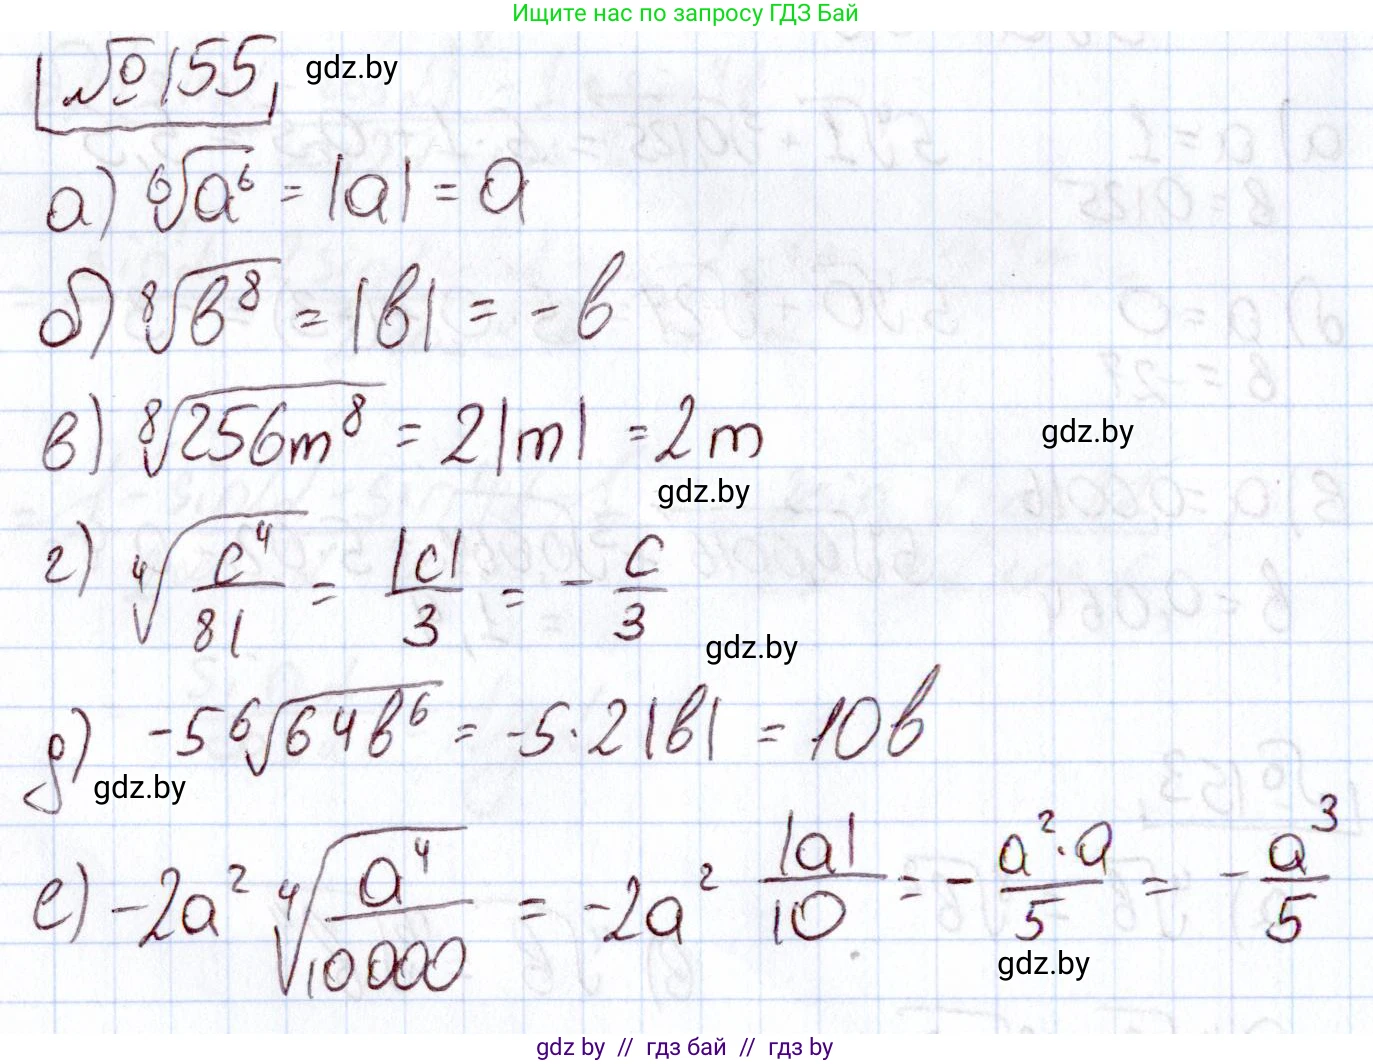 Ищите нас по запросу ГДЗ Бай
№155 gdz.by
а) ⁶√a⁶ = |a| = a
б) ⁸√b⁸ = |b| = -b
в) ⁸√256m⁸ = 2|m| = 2m
gdz.by
gdz.by
г) ⁴√(c⁴/81) = |c|/3 = -c/3
gdz.by
д) -5 ⁶√64b⁶ = -5·2|b| = 10b
gdz.by
е) -2a² ⁴√(a⁴/10000) = -2a² |a|/10 = -a²·a/5 = -a³/5
gdz.by
gdz by // гдз бай // гдз by